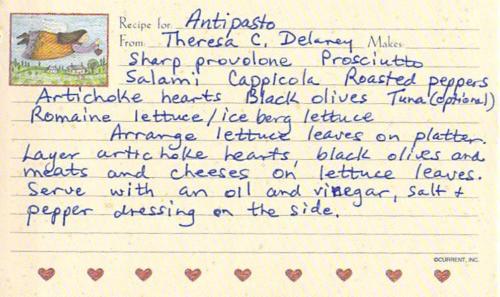 Recipe for Antipasto
From Theresa C. Delaney Makes
Sharp provolone Prosciutto
Salami Cappicola Roasted peppers
Artichoke hearts Black olives Tuna (optional)
Romaine lettuce/ice berg lettuce
Arrange lettuce leaves on platter.
Layer artichoke hearts, black olives and
meats and cheeses on lettuce leaves.
Serve with an oil and vinegar, salt +
pepper dressing on the side.
©CURRENT, INC.